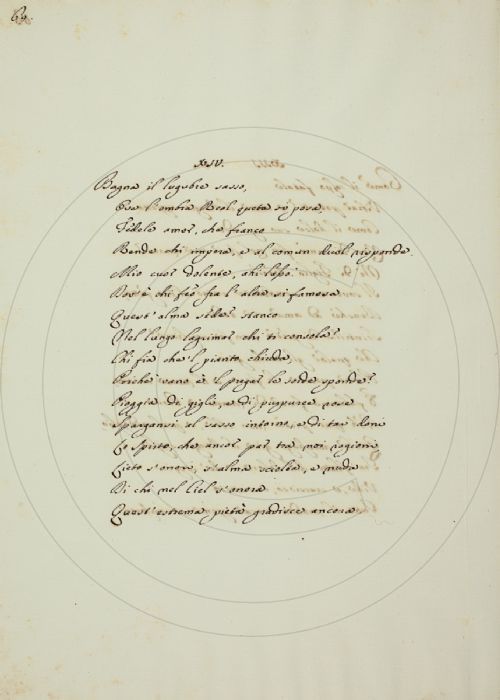 60.
XIV.
Bagna il lugubre sasso,
Ove l'ombra Real queta si posa,
Fedele amor, che franco
Rende chi impera, e al comun duol risponde.
Mio cuor dolente, ahi lasso.
Dov'è chi feo fra l'altre si famosa
Quest'alma sede? stanco
Nel lungo lagrimar chi ti consola?
Chi fia che 'l pianto chiuda,
Perchè vano è 'l pregar le sorde sponde?
Pioggia di gigli, e di purpuree rose
Spargansi al sasso intorno, e di tai doni
Lo Spirto, che ancor par tra noi ragioni
Lieto s'onori, e alma sciolta, e nuda
Di chi nel Ciel s'onora
Quest'estrema pietà gradisce ancora